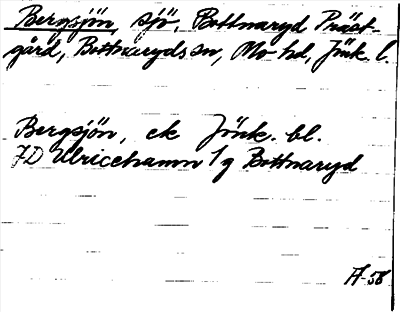 Bergsjön, sjö, Bottnaryd Präst-
gård, Bottnaryds sn, Mo hd, Jönk. l.
Bergsjön, ek Jönk. bl.
7D Ulricehamn 1g Bottnaryd
A-58